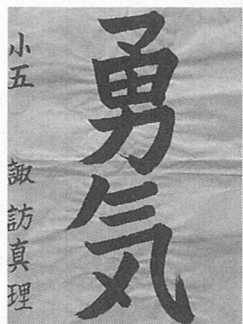 勇気
小五 諏訪真理